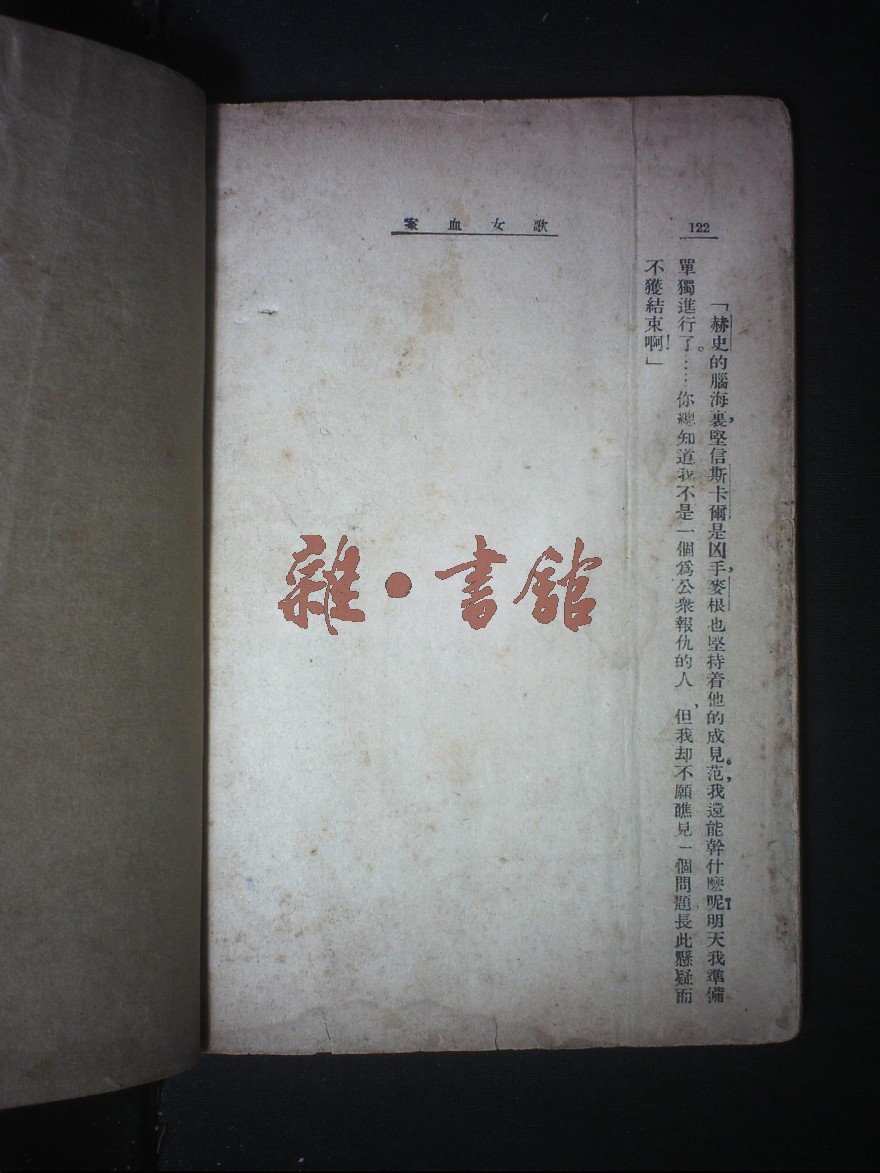 122
歌女血案
「赫史的腦海裏，堅信斯卡爾是凶手，麥根也堅持着他的成見。范，我還能幹什麼呢？明天我準備
單獨進行了。……你總知道我不是一個爲公衆報仇的人，但我却不願瞧見一個問題長此懸疑而
不獲結束啊！」
雜·書館